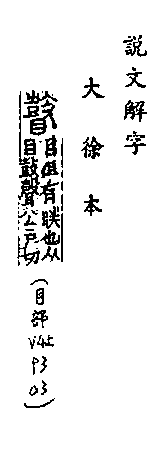 說文解字
大徐本
瞽 目但有眹也从
目鼓聲公戶切
(目部 V4上 P3 03)